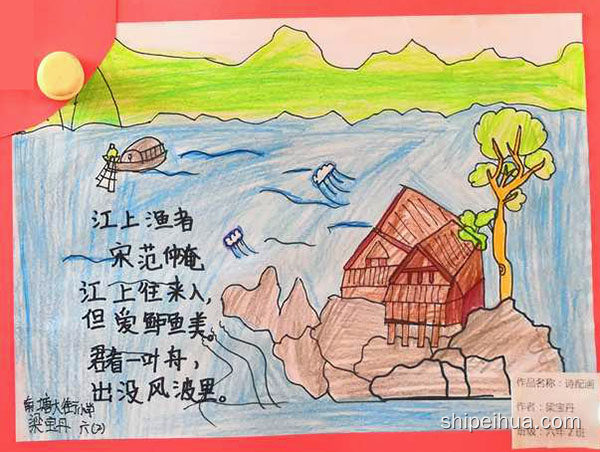 江上渔者
宋 范仲淹
江上往来人，
但爱鲈鱼美。
君看一叶舟，
出没风波里。
塘大街小学
梁宝丹 六(2)
作品名称：诗配画
作者：梁宝丹
班级：六年2班
shipeihua.com